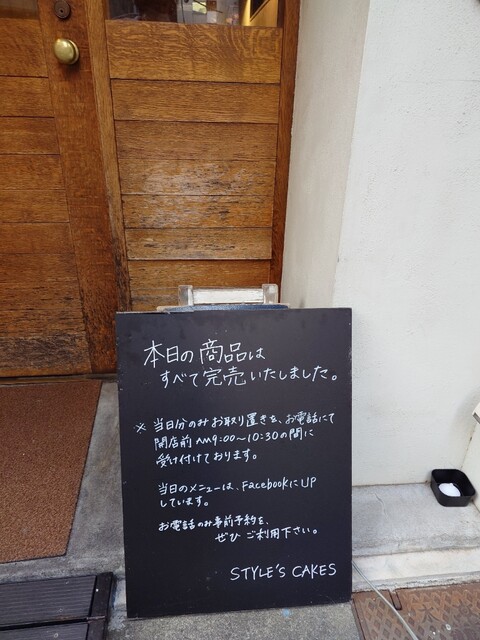 本日の商品は
すべて完売いたしました。
※ 当日分のみお取り置きを、お電話にて
開店前 AM9:00〜10:30の間に
受け付けております。
当日のメニューは、FacebookにUP
しています。
お電話のみ事前予約を、
ぜひ ご利用下さい。
STYLE'S CAKES